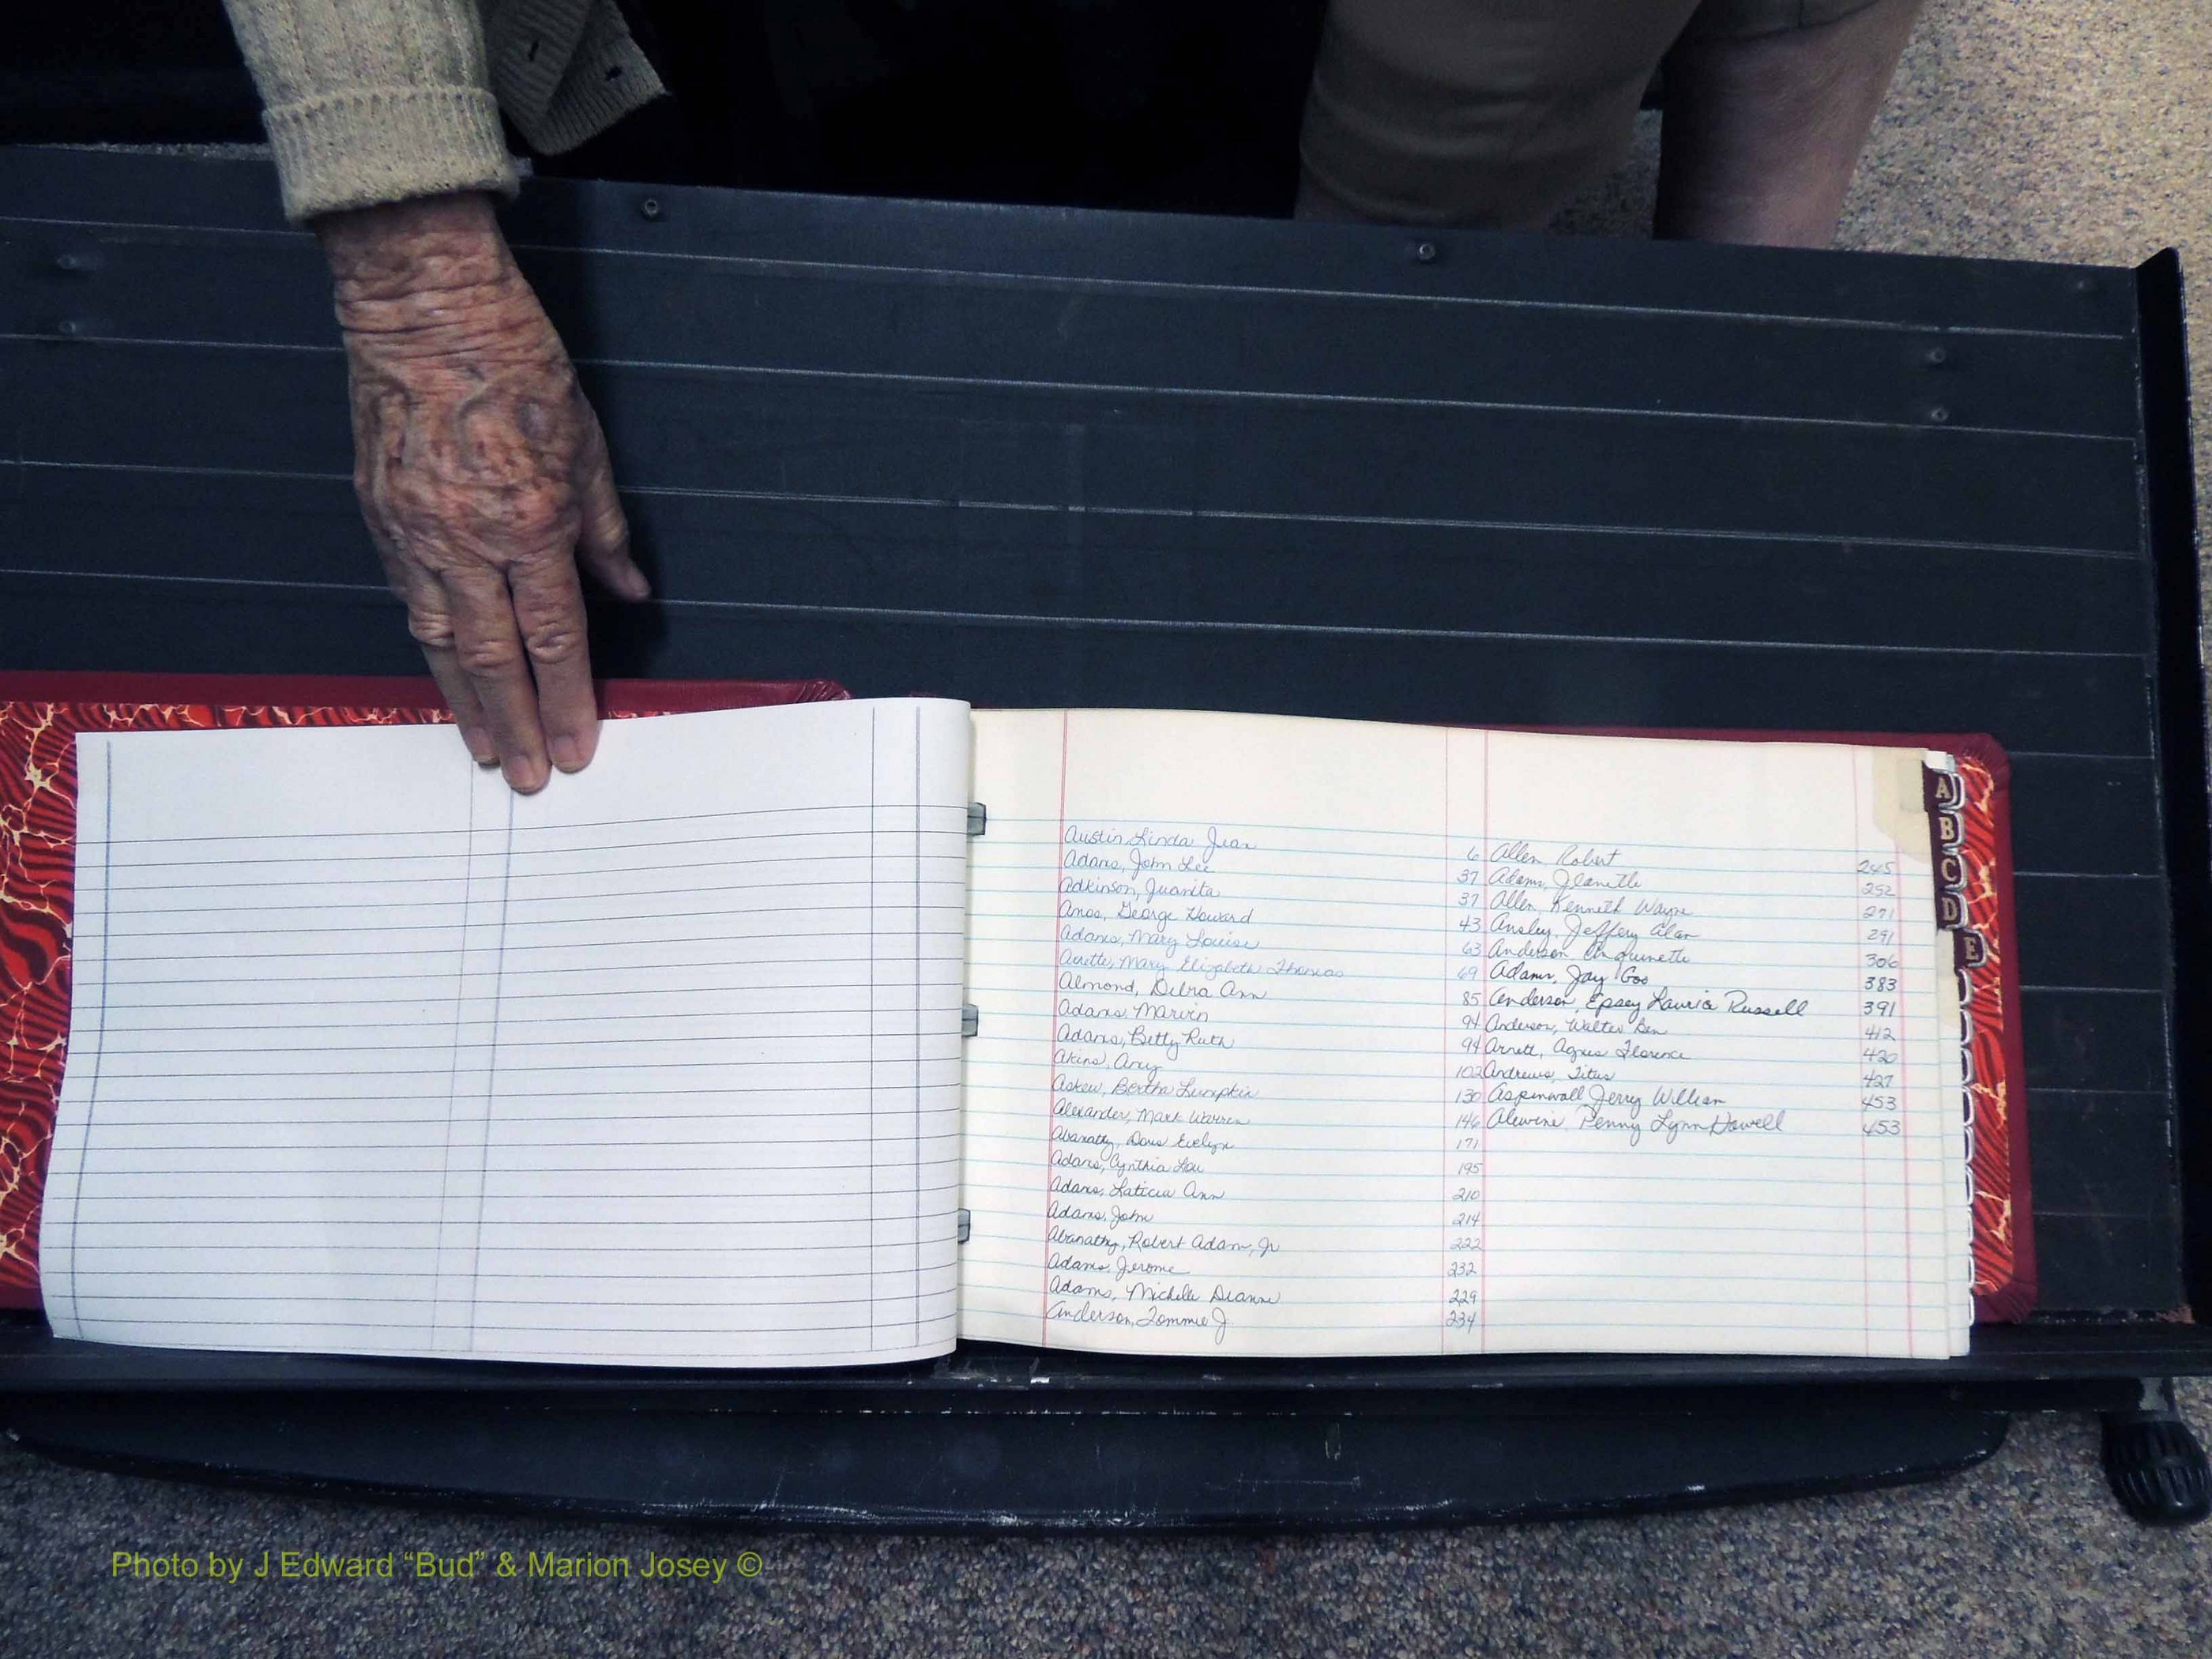 Austin Linda Jean 6
Adams, John Lee 37
Adkinson, Juanita 37
Amos, George Howard 43
Adams, Mary Louise 63
Mary Elizabeth Thomas 69
Almond, Debra Ann 85
Adams, Marvin 94
Adams, Betty Ruth 94
Akins, Amy 102
Askew, Bertha Lumpkin 130
Alexander, Mark Warren 146
Abanathy, Doris Evelyn 171
Adams, Cynthia Lou 195
Adams, Laticia Ann 210
Adams, John 214
Abanathy, Robert Adam, Jr 222
Adams, Jerome 232
Adams, Michelle Dianne 229
Anderson, Tommie J. 234
Allen Robert 245
Adams, Jeanette 252
Allen, Kenneth Wayne 271
Ansley, Jeffery Alan 291
Anderson, 306
Adams, Jay Goo 383
Anderson, Epsey Lauria Russell 391
Anderson, Walter Ben 412
Arnett, Agnes Florence 420
Andrews, Titus 427
Aspinwall Jerry William 453
Alewine, Penny Lynn Howell 453
A
B
C
D
E
Photo by J Edward “Bud” & Marion Josey ©